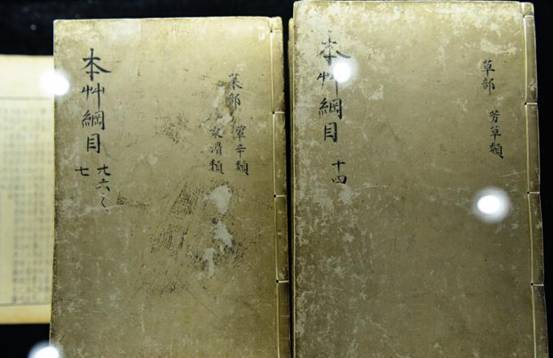 草部 芳草類
本艸綱目 十四
菜部 葷辛類
柔滑類
本艸綱目
七